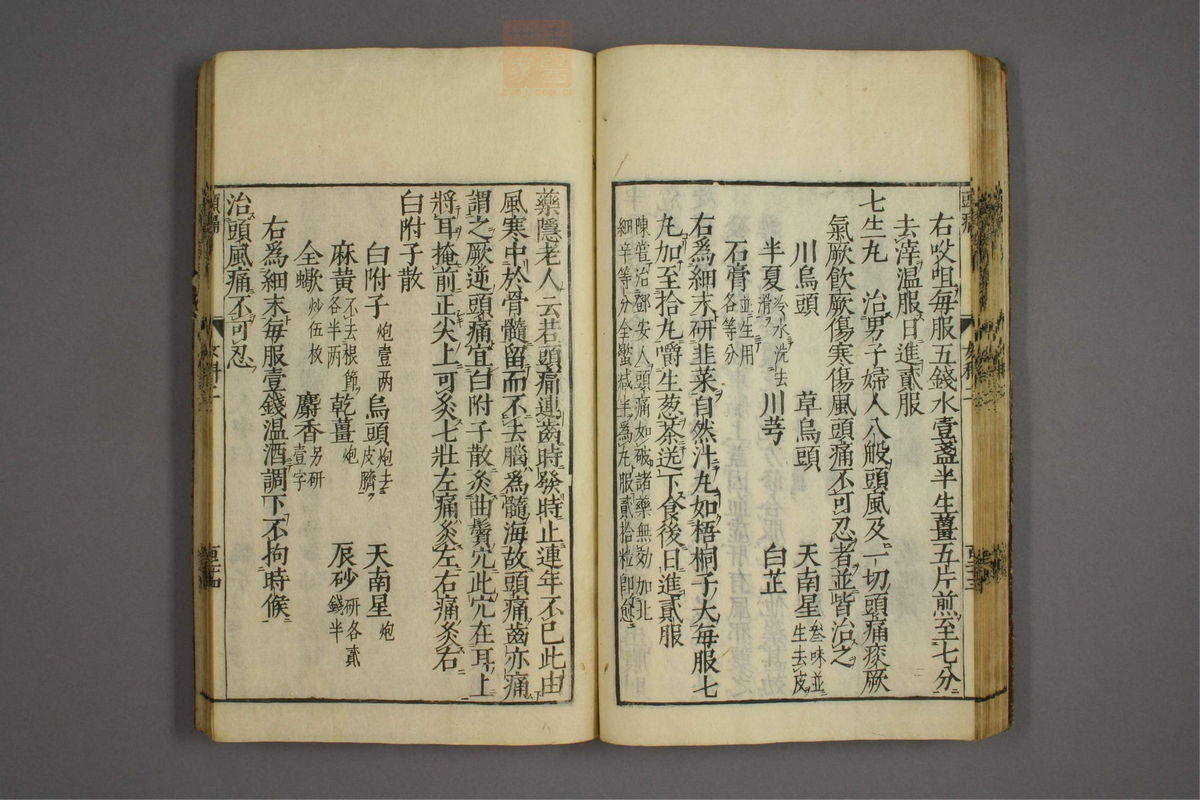 右㕮咀每服五錢水壹盞半生薑五片煎至七分
去滓温服日進貳服
七生丸 治男子婦人八般頭風及一切頭痛痰厥
氣厥飲厥傷寒傷風頭痛不可忍者並皆治之
川烏頭 草烏頭 天南星叄味並生去皮
半夏冷水洗去滑 川芎 白芷
石膏並生用各等分
右爲細末研韭菜自然汁丸如梧桐子大每服七
丸加至拾丸嚼生葱茶送下食後日進貳服
陳曾治鄧安人頭痛如破諸藥無効加北
細辛等分全蠍减半爲丸服貳拾粒即愈
藥隱老人云若頭痛連齒時發時止連年不已此由
風寒中於骨髓留而不去腦爲髓海故頭痛齒亦痛
謂之厥逆頭痛宜白附子散灸曲鬢穴此穴在耳上
將耳掩前正尖上可灸七壯左痛灸左右痛灸右
白附子散
白附子炮壹两 烏頭炮去皮臍 天南星炮
麻黄不去根節各半两 乾薑炮 辰砂研各貳錢半
全蠍炒伍枚 麝香另研壹字
右爲細末每服壹錢温酒調下不拘時候
治頭風痛不可忍
頭痛